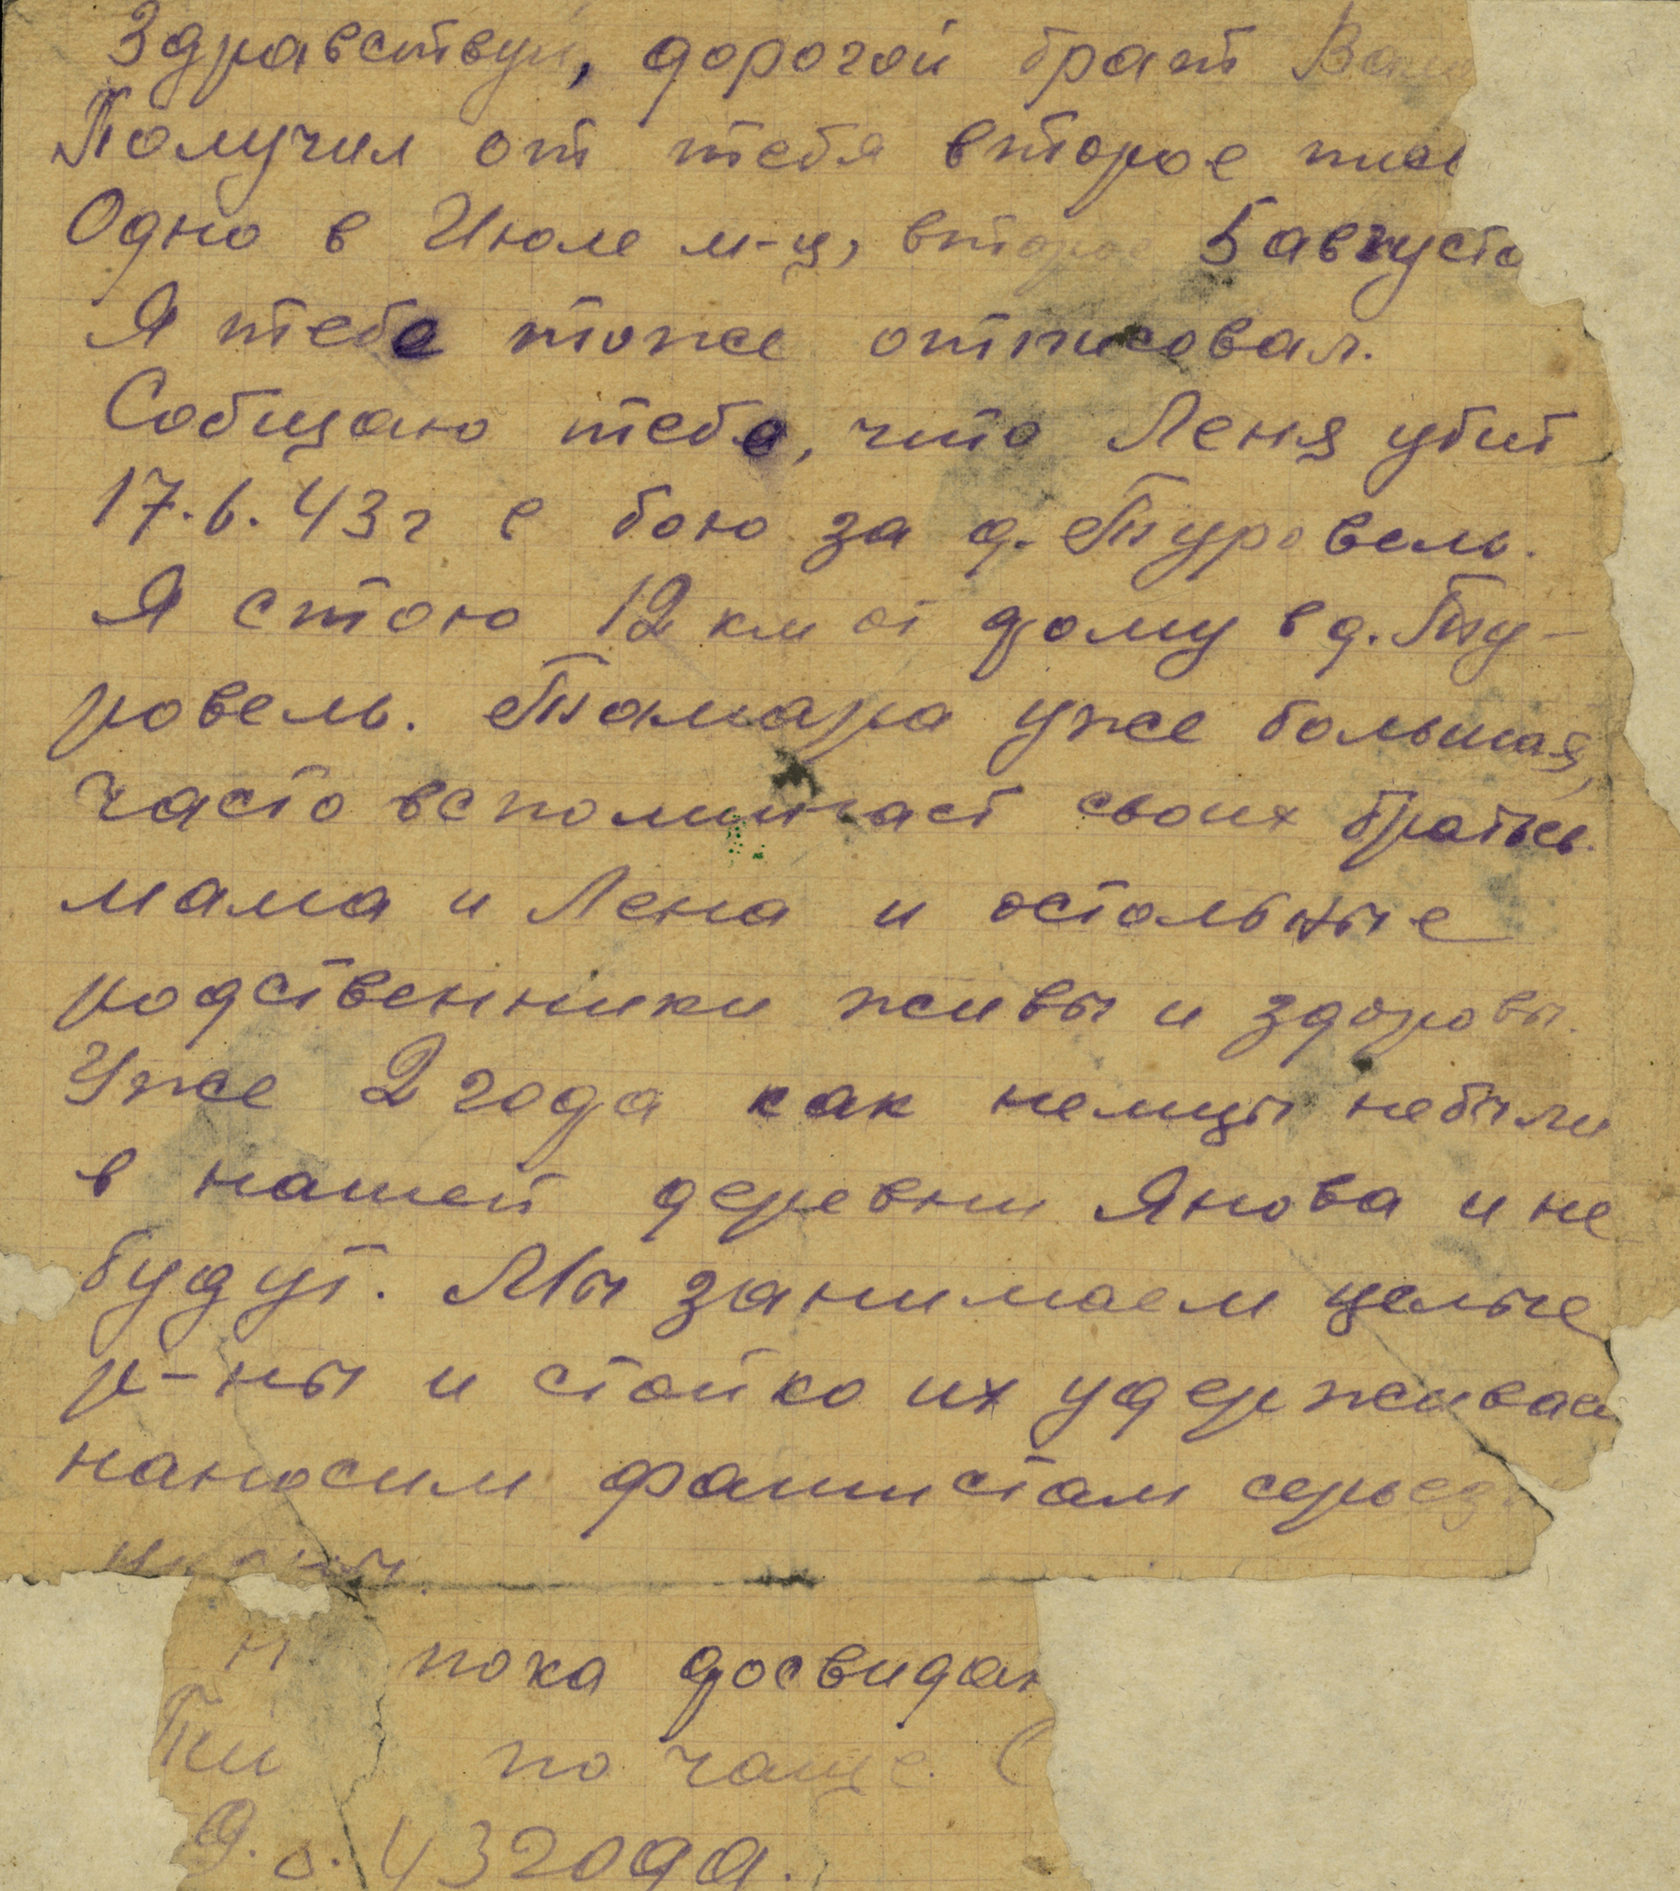 Здравствуй, дорогой брат
Получил от тебя второе
Одно в Июле м-ц, второе 5 августа
Я тебе тоже отписовал.
Собщаю тебе, что Леня убит
17.6.43г в бою за д. Туровель.
Я стою 12 км от дому в д. Ту-
ровель. Тамара уже большая,
часто вспоминает своих братьев.
мама и Лена и остольные
родственники живы и здоровы.
Уже 2 года как немцы небыли
в нашей деревни Янова и не
будут. Мы занимаем целые
р-ны и стойко их удерживае
наносим фашистам серьез
пока досвидан
по чаще.
43 года.